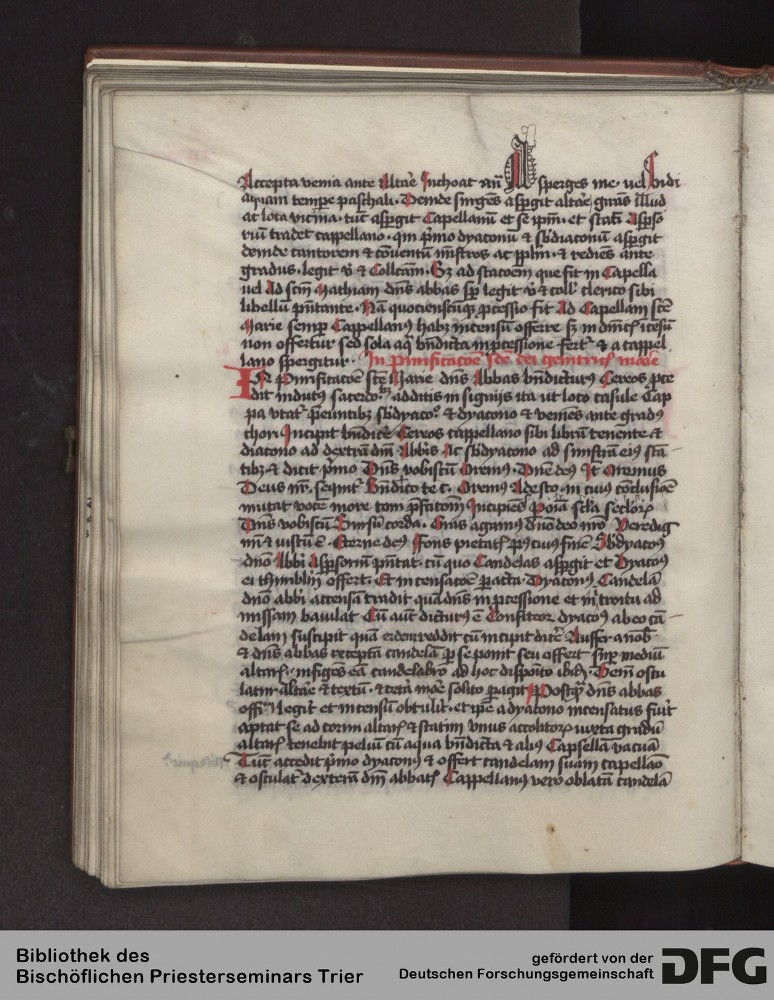 Accepta venia ante Altare Inchoat an̄ Asperges me · vel Indi
at lota vicina · tūc asp̄git Capellanū et se ip̄m · et statī Asp̄so
riū tradet cappellano · qui p̄mo dyaconū & sb̄diaconū asp̄git
deinde cantorem & cōventū mīstros ac pp̄lm · & rediēs ante
gradus · legit v̄ & Collcām · Sʒ ad stacōem que fit in Capella
vel Ad sc̄m Mathiam dn̄s abbas sp̄ legit v̄ & coll' clerico sibi
libellū pn̄tante · Nā quocienscūqʒ p̄cessio fit Ad Capellam sc̄e
Marie semp̄ Cappellanꝰ habʒ incensū offerre sʒ in
non offertur sed sola aqᵃ bn̄dicta in p̄cessione fert̄ & a cappel
lano sp̄ergitur · In Purificacōe sc̄e dei genitricꝭ marie
In Purificacōe sc̄e Marie dn̄s Abbas bn̄dicturꝰ Cereos p̄ce
dit indutꝰ additis insignijs ita ut loco casule Cap
pa vtat̄ p̄euntibꝫ sb̄dyacoꝰ & dyacono & veniēs ante gradꝰ
chori Incipit bn̄dicē Cereos cappellano sibi librū tenente &
diacono ad dextrā dn̄i Abb̄is Ac sb̄dyacono ad sinistrā eiꝰ stā
tibꝫ & dicit p̄mo Dn̄s vobiscū Oremꝰ · Dn̄e deꝰ It Oremus
Deus nr̄ · seqūit̄ Bn̄dico te c̄ · Oremꝰ Adesto · in cuiꝰ cōclusiōe
mutat vocē more tom p̄facōm Incipiēd P̄ oīa sc̄la sc̄lorꝫ
Dn̄s vobiscū Sursū corda · Grās agamꝰ dn̄o deo nr̄o Veredig
nū & iustū ē · Eterne deꝰ Fons pietatꝭ
dn̄o Abb̄i Asp̄soriū pn̄tat · cū quo Candelas asp̄git et Dyacoꝰ
ei thuriblm̄ offert · Et incensacōe p̄acta · Dyaconꝰ Candelā
dn̄o abb̄i accensā tradit quā dn̄s in p̄cessione et in introitu ad
missam baiulat Cū aut̄ dicturꝰ ē Confiteor dyacoꝰ ab eo cā
delam suscipit quā eidem reddit cū incipit dic̄e Auffer a nob̄
& dn̄s abbas receptā candelā p̄ se ponit seu offert sup̄ mediū
altarꝭ · infigēs eā candelabro ad hoc disp̄oīto ibidē · Dem̄ oscu
latur altāe & textū · & cet̄a mōe solito p̄agit Postqᵃ dn̄s abbas
off̄m legit et incensū obtulit · et ip̄e a dyacono incensatus fuit
aptat se ad cornu altarꝭ & statim vnus accolitorꝫ iuxta gradū
altarꝭ tenebit peluī cū aqua bn̄dicta & aliꝰ Capsellā vacuā
Tūc accedit p̄mo dyaconꝰ & offert candelam suam capellāo
& osculat̄ dexterā dn̄i abbatꝭ Cappellanꝰ vero oblatā candelā
Bibliothek des
Bischöflichen Priesterseminars Trier
gefördert von der
Deutschen Forschungsgemeinschaft
DFG